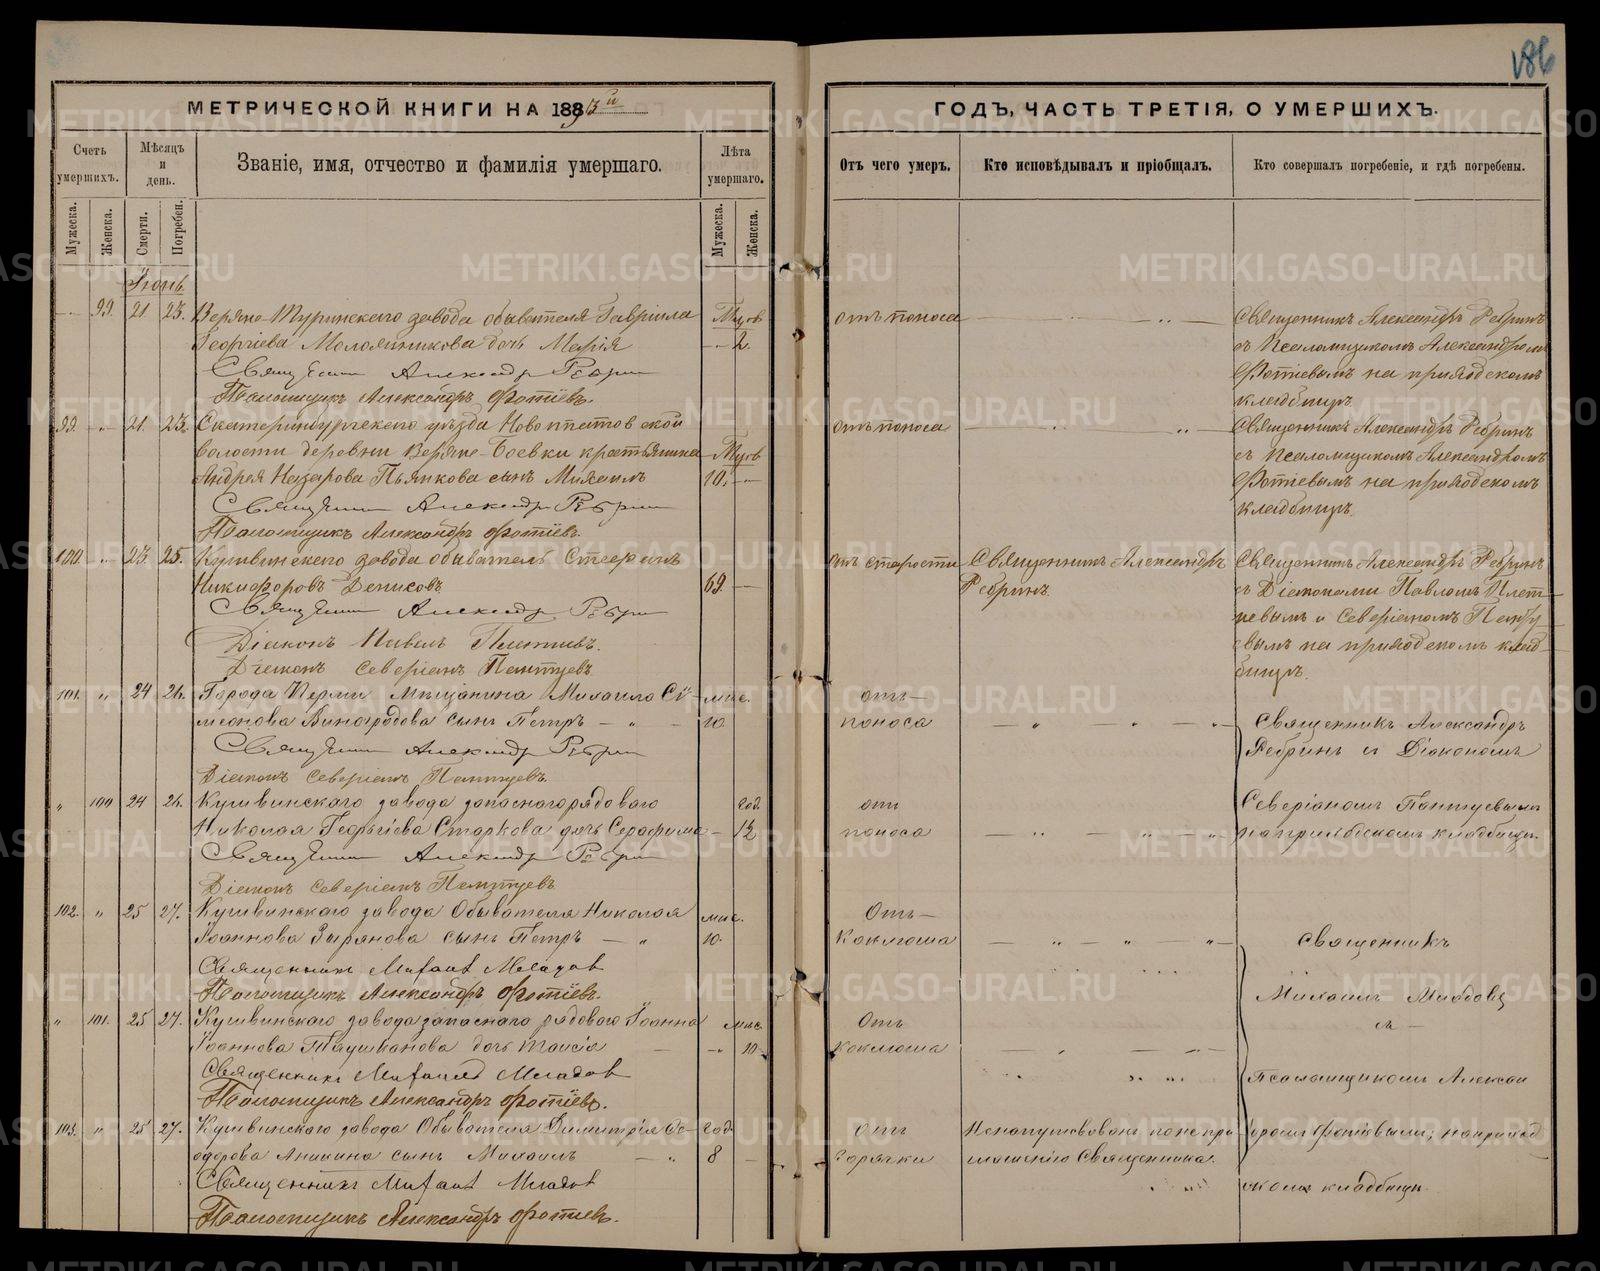 186
МЕТРИЧЕСКОЙ КНИГИ НА 1893й
ГОДЪ, ЧАСТЬ ТРЕТІЯ, О УМЕРШИХЪ.
Счетъ умершихъ.
Мѣсяцъ и день.
Званіе, имя, отчество и фамилія умершаго.
Лѣта умершаго.
Отъ чего умеръ.
Кто исповѣдывалъ и пріобщалъ.
Кто совершалъ погребеніе, и гдѣ погребены.
Мужеска.
Женска.
Смерти.
Погребен.
Мужеска.
Женска.
Іюнь
99. 21 23. Верхне-Туринскаго завода обывателя Гавріила
Георгіева Молошникова дочь Марія 2.
отъ поноса
Священникъ Александръ Ребринъ
съ Псаломщикомъ Александромъ
Фотіевымъ на приходскомъ
кладбищѣ
Священникъ Александръ Ребринъ
Псаломщикъ Александръ Фотіевъ.
99. " 21. 23. Екатеринбургскаго уѣзда Новоипатовской
волости деревни Верхне-Боевки крестьянина
Андрея Назарова Пьянкова сынъ Михаилъ 10.
отъ поноса
Священникъ Александръ Ребринъ
съ Псаломщикомъ Александромъ
Фотіевымъ на приходскомъ
кладбищѣ.
Священникъ Александръ Ребринъ
Псаломщикъ Александръ Фотіевъ.
100. " 23. 25. Кушвинскаго завода обыватель Стефанъ
Никифоровъ Денисовъ 69.
отъ старости
Священникъ Александръ
Ребринъ.
Священникъ Александръ Ребринъ
съ Діаконами Павломъ Плет-
невымъ и Северіаномъ Панту-
евымъ на приходскомъ клад-
бищѣ.
Священникъ Александръ Ребринъ
Діаконъ Павелъ Плетневъ.
Діаконъ Северіанъ Пантуевъ
101. " 24 26. Города Перми мѣщанина Михаила Сѵ- мѣс.
меонова Виноградова сынъ Петръ — " — 10.
отъ
поноса
Священникъ Александръ
Ребринъ съ Діакономъ
Священникъ Александръ Ребринъ
Діаконъ Северіанъ Пантуевъ.
" 100 24 26. Кушвинскаго завода запаснаго рядоваго год.
Николая Георгіева Старкова дочь Серафима — 1½
отъ
поноса
Северіаномъ Пантуевымъ
на приходскомъ кладбищѣ.
Священникъ Александръ Ребринъ
Діаконъ Северіанъ Пантуевъ
102. " 25 27. Кушвинскаго завода Обывателя Николая мѣс.
Іоаннова Зырянова сынъ Петръ — " 10.
Отъ
Коклюша
Священникъ
Священникъ Михаилъ Младовъ
Псаломщикъ Александръ Фотіевъ.
Михаилъ Младовъ
съ —
" 101. 25 27. Кушвинскаго завода запаснаго рядоваго Іоанна мѣс.
Іоаннова дочь Таисія — " 10
Отъ
коклюша
Священникъ Михаилъ Младовъ
Псаломщикомъ Алексан
Псаломщикъ Александръ Фотіевъ.
103. " 25 27. Кушвинскаго завода Обывателя Димитрія Ѳе- год.
одорова Аникина сынъ Михаилъ — " 8
отъ
горячки
Ненапутствованъ по непри
глашенію Священника.
дромъ Фотіевымъ, на приход
скомъ кладбищѣ
Священникъ Михаилъ Младовъ
Псаломщикъ Александръ Фотіевъ.
METRIKI.GASO-URAL.RU